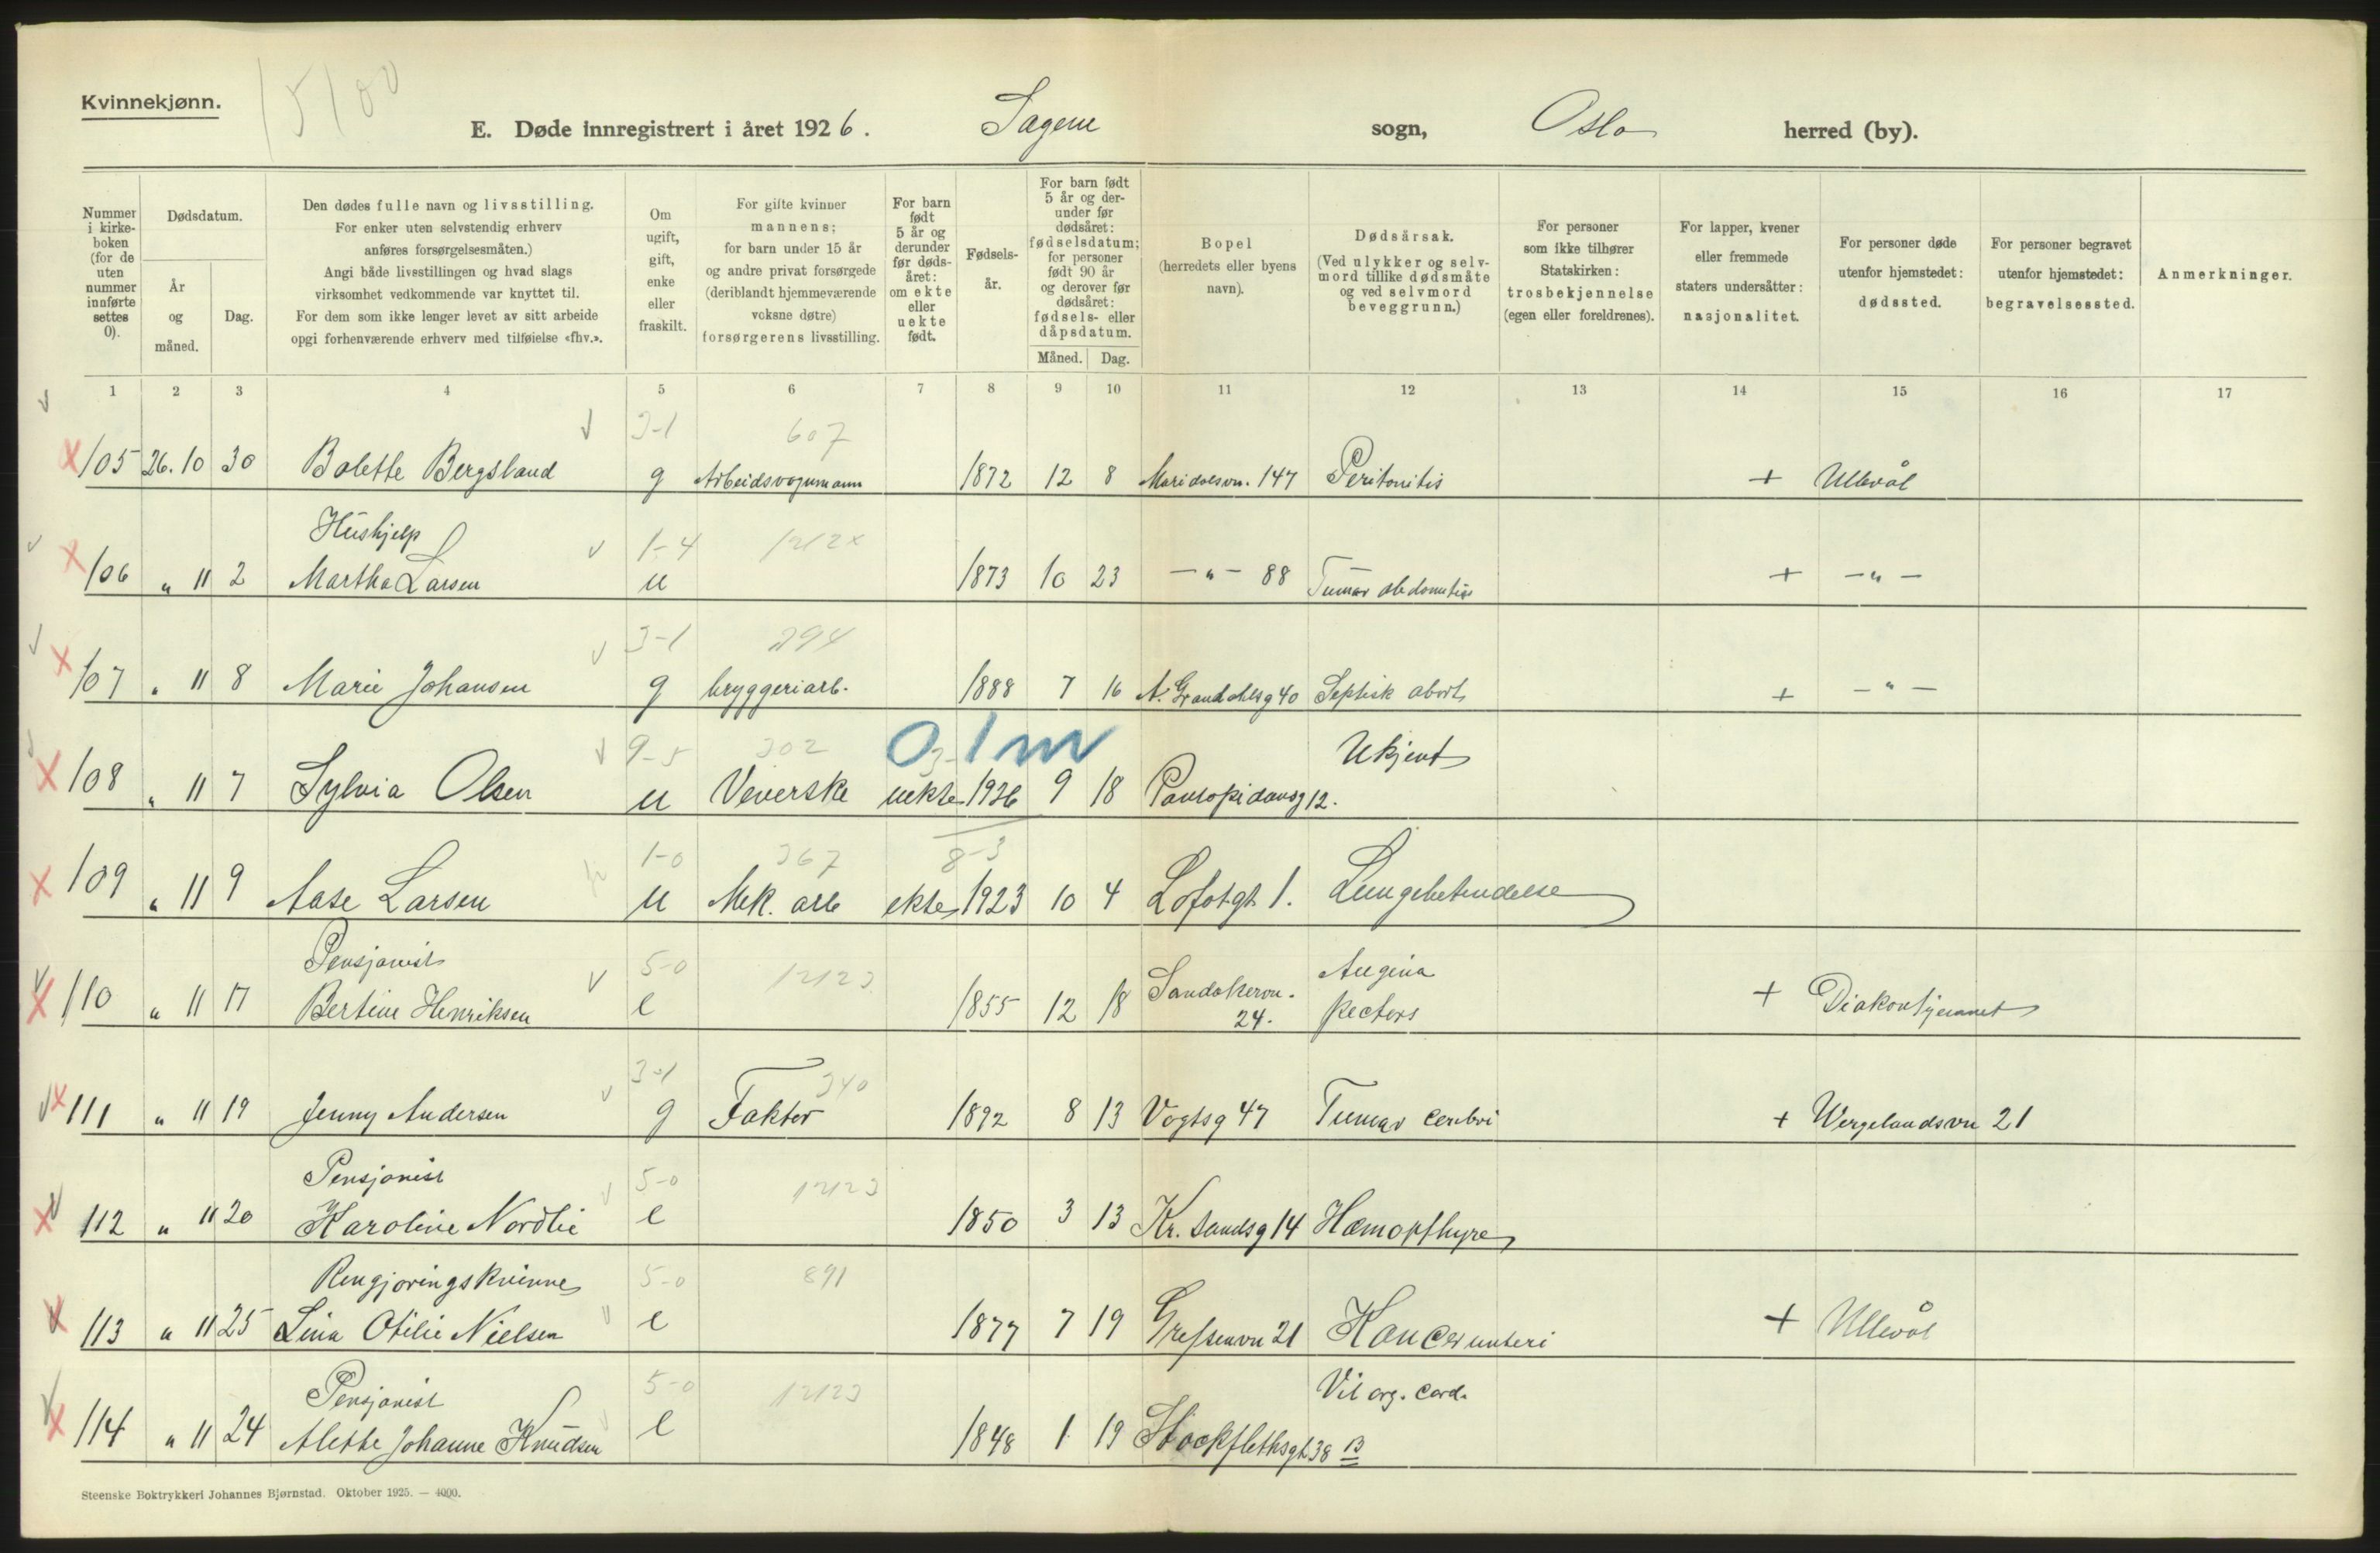 Kvinnekjønn.
15/00
E. Døde innregistrert i året 1926. Sagene sogn, Oslo herred (by).
Nummer i kirke-boken (for de uten nummer innførte settes 0).
Dødsdatum.
År og måned.
Dag.
Den dødes fulle navn og livsstilling.
For enker uten selvstendig erhverv
anføres forsørgelsesmåten.)
Angi både livsstillingen og hvad slags
virksomhet vedkommende var knyttet til.
For dem som ikke lenger levet av sitt arbeide
opgi forhenværende erhverv med tilføielse «fhv.».
Om ugift, gift, enke eller fraskilt.
For gifte kvinner
mannens;
for barn under 15 år
og andre privat forsørgede
(deriblandt hjemmeværende
voksne døtre)
forsørgerens livsstilling.
For barn født 5 år og derunder før døds-året: om ekte eller uekte født.
Fødsels-år.
For barn født 5 år og der-under før dødsåret: fødselsdatum; for personer født 90 år og derover før dødsåret: fødsels- eller dåpsdatum.
Måned. Dag.
Bopel
(herredets eller byens
navn).
Dødsårsak.
(Ved ulykker og selv-
mord tillike dødsmåte
og ved selvmord
beveggrunn.)
For personer
som ikke tilhører
Statskirken:
trosbekjennelse
(egen eller foreldrenes).
For lapper, kvener
eller fremmede
staters undersåtter:
nasjonalitet.
For personer døde
utenfor hjemstedet:
dødssted.
For personer begravet
utenfor hjemstedet:
begravelsessted.
Anmerkninger.
1 2 3 4 5 6 7 8 9 10 11 12 13 14 15 16 17
3-1 607
105 26.10 30 Bolette Bergsland g Arbeidsvognmann 1872 12 8 Maridalsvn. 147 Peritonitis + Ullevål
Hushjelp 1-4 1212x
106 „ 11 2 Martha Larsen u 1873 10 23 —„— 88 Tumor + —„—
3-1 294
107 „ 11 8 Marie Johansen g bryggeriarb. 1888 7 16 40 Septisk abort + —„—
9-5 302 0-1 m Ukjent
108 „ 11 7 Sylvia Olsen u Veverske uekte 1926 9 18 Pontopidansg 12.
1-0 367 8-3
109 „ 11 9 Aase Larsen u Mek. arb ekte 1923 10 4 Lofotgt 1. Lungebetendelse
Pensjonist 5-0 12123 Angina
110 „ 11 17 Bertine Henriksen e 1855 12 18 Sandakervn. 24. pectors + Diakonhjemmet
3-1 340
111 „ 11 19 Jenny Andersen g Faktor 1892 8 13 Vogtsg 47 Tumor cerebri + Wergelandsvn 21
Pensjonist 5-0 12123
112 „ 11 20 Karoline Nordlie e 1850 3 13 Kr. sandsg 14 Hæmopthyre
Rengjøringskvinne 5-0 891
113 „ 11 25 Lina Otilie Nielsen e 1877 7 19 Grefsenvn 21 Kancer unteri + Ullevål
Pensjonist 5-0 12123 Vit org. cord.
114 „ 11 24 Alette Johanne Knudsen e 1848 1 19 Stockflethsgt 38 B
Steenske Boktrykkeri Johannes Bjørnstad. Oktober 1925. — 4000.